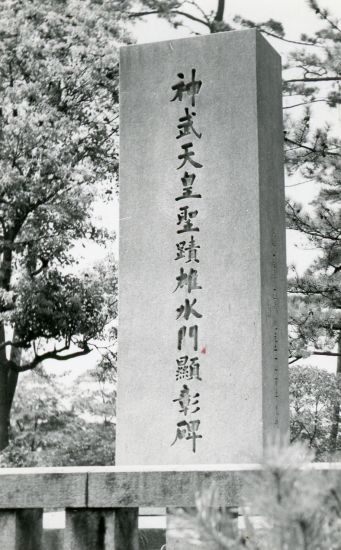 神武天皇聖蹟雄水門顯彰碑